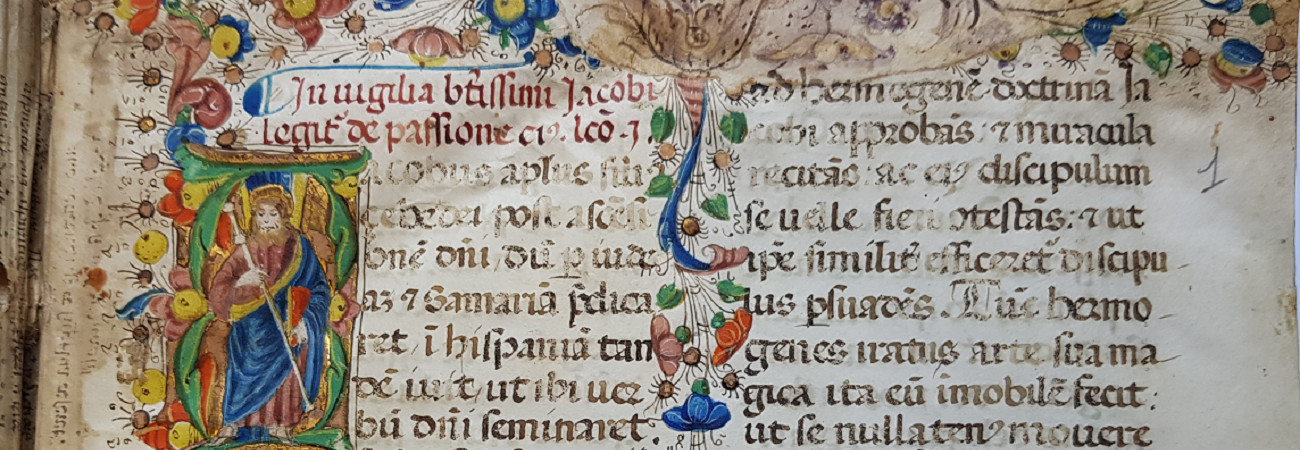 In uigilia btīssimi Jacobi
legit᷑ de passione eiꝰ. lcō. j
acobus aplus filii
zebedei post ascēsi
onē dn̄i dū ꝑ iude
az ⁊ Samariā p̄dica
ret ī hispaniā tan
dē iuit ut ibi uer
bū dn̄i seminaret.
ad hermogenē doctrinā Ja
cobi approbās ⁊ miracula
recitās ac eiꝰ discipulum
se uelle fieri ꝯtestās: ⁊ ut
ip̄e similit᷑ efficeret᷑ discipu
lus ꝑsuadēs. Tūc hermo
genes iratus arte sua ma
gica ita eū imobilē fecit:
ut se nullatenꝰ mouere
1